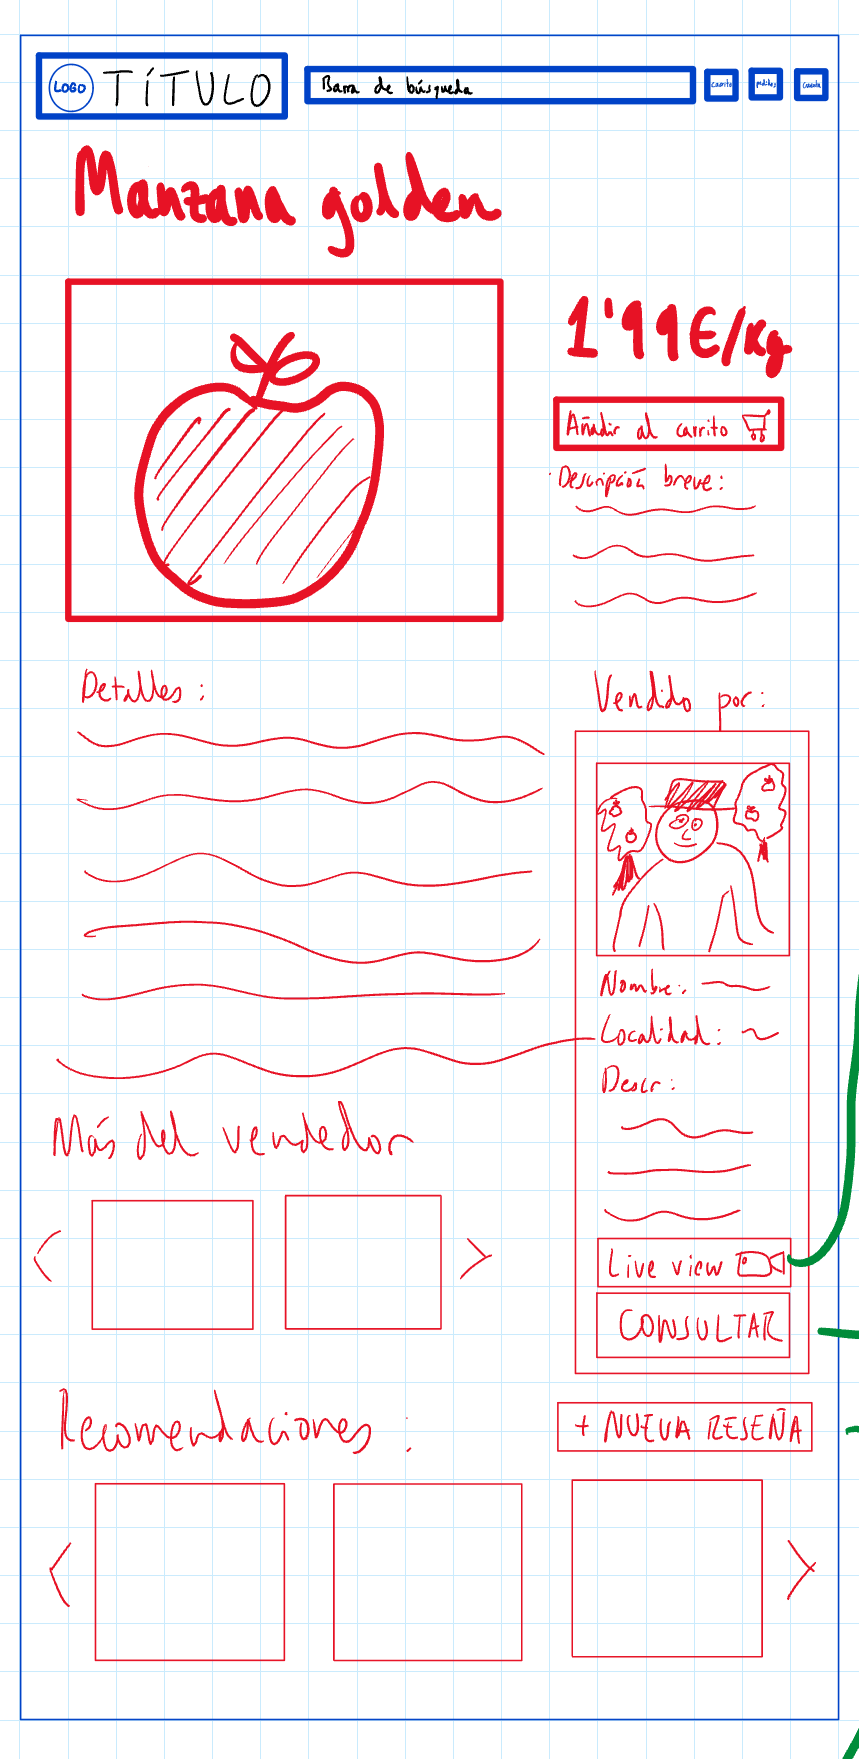 LOGO TÍTULO
Barra de búsqueda
carrito
pedidos
cuenta
Manzana golden
1'99€/Kg
Añadir al carrito
Descripción breve:
Detalles:
Vendido por:
Nombre:
Localidad:
Descr:
Más del vendedor
< >
Live view
CONSULTAR
Recomendaciones:
+ NUEVA RESEÑA
< >